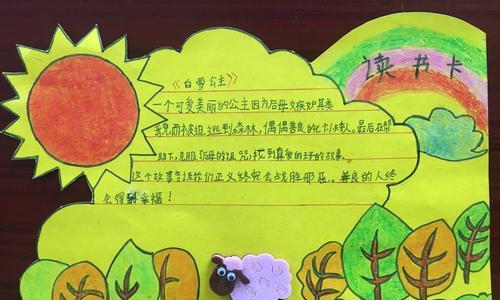 读书卡
《白雪公主》
一个可爱美丽的公主因为后母嫉妒其美
貌而被迫逃到森林,偶偶善良的七个小矮人。最后在
助下,克服了母的诅咒,找到真爱的王子的故事。
这个故事告诉我们正义终究会战胜邪恶。善良的人终
会得到幸福!